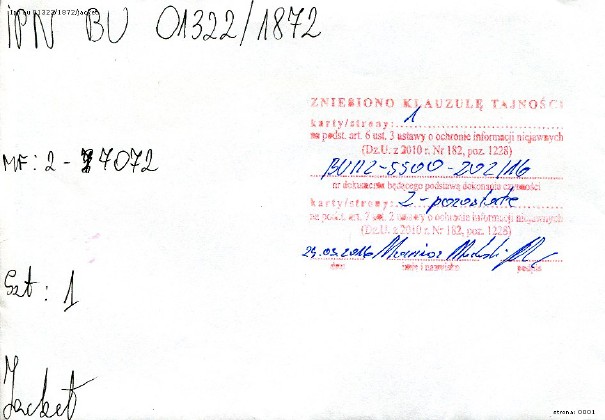 IPN BU 01322/1872
ZNIESIONO KLAUZULĘ TAJNOŚCI
karty/strony: 1
na podst. art. 6 ust. 3 ustawy o ochronie informacji niejawnych
(Dz.U. z 2010 r. Nr 182, poz. 1228)
BUIZ-5500-202/16
nr dokumentu będącego podstawą dokonania czynności
karty/strony: 2-pozostałe
na podst. art. 7 ust. 2 ustawy o ochronie informacji niejawnych
(Dz.U. z 2010 r. Nr 182, poz. 1228)
MF: 2 - 7072
data imię i nazwisko podpis
Szt: 1
Jacket
strona: 0001